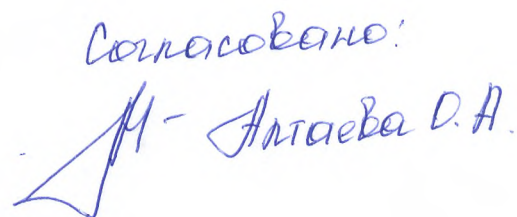 Согласовано:
Алтаева О.А.